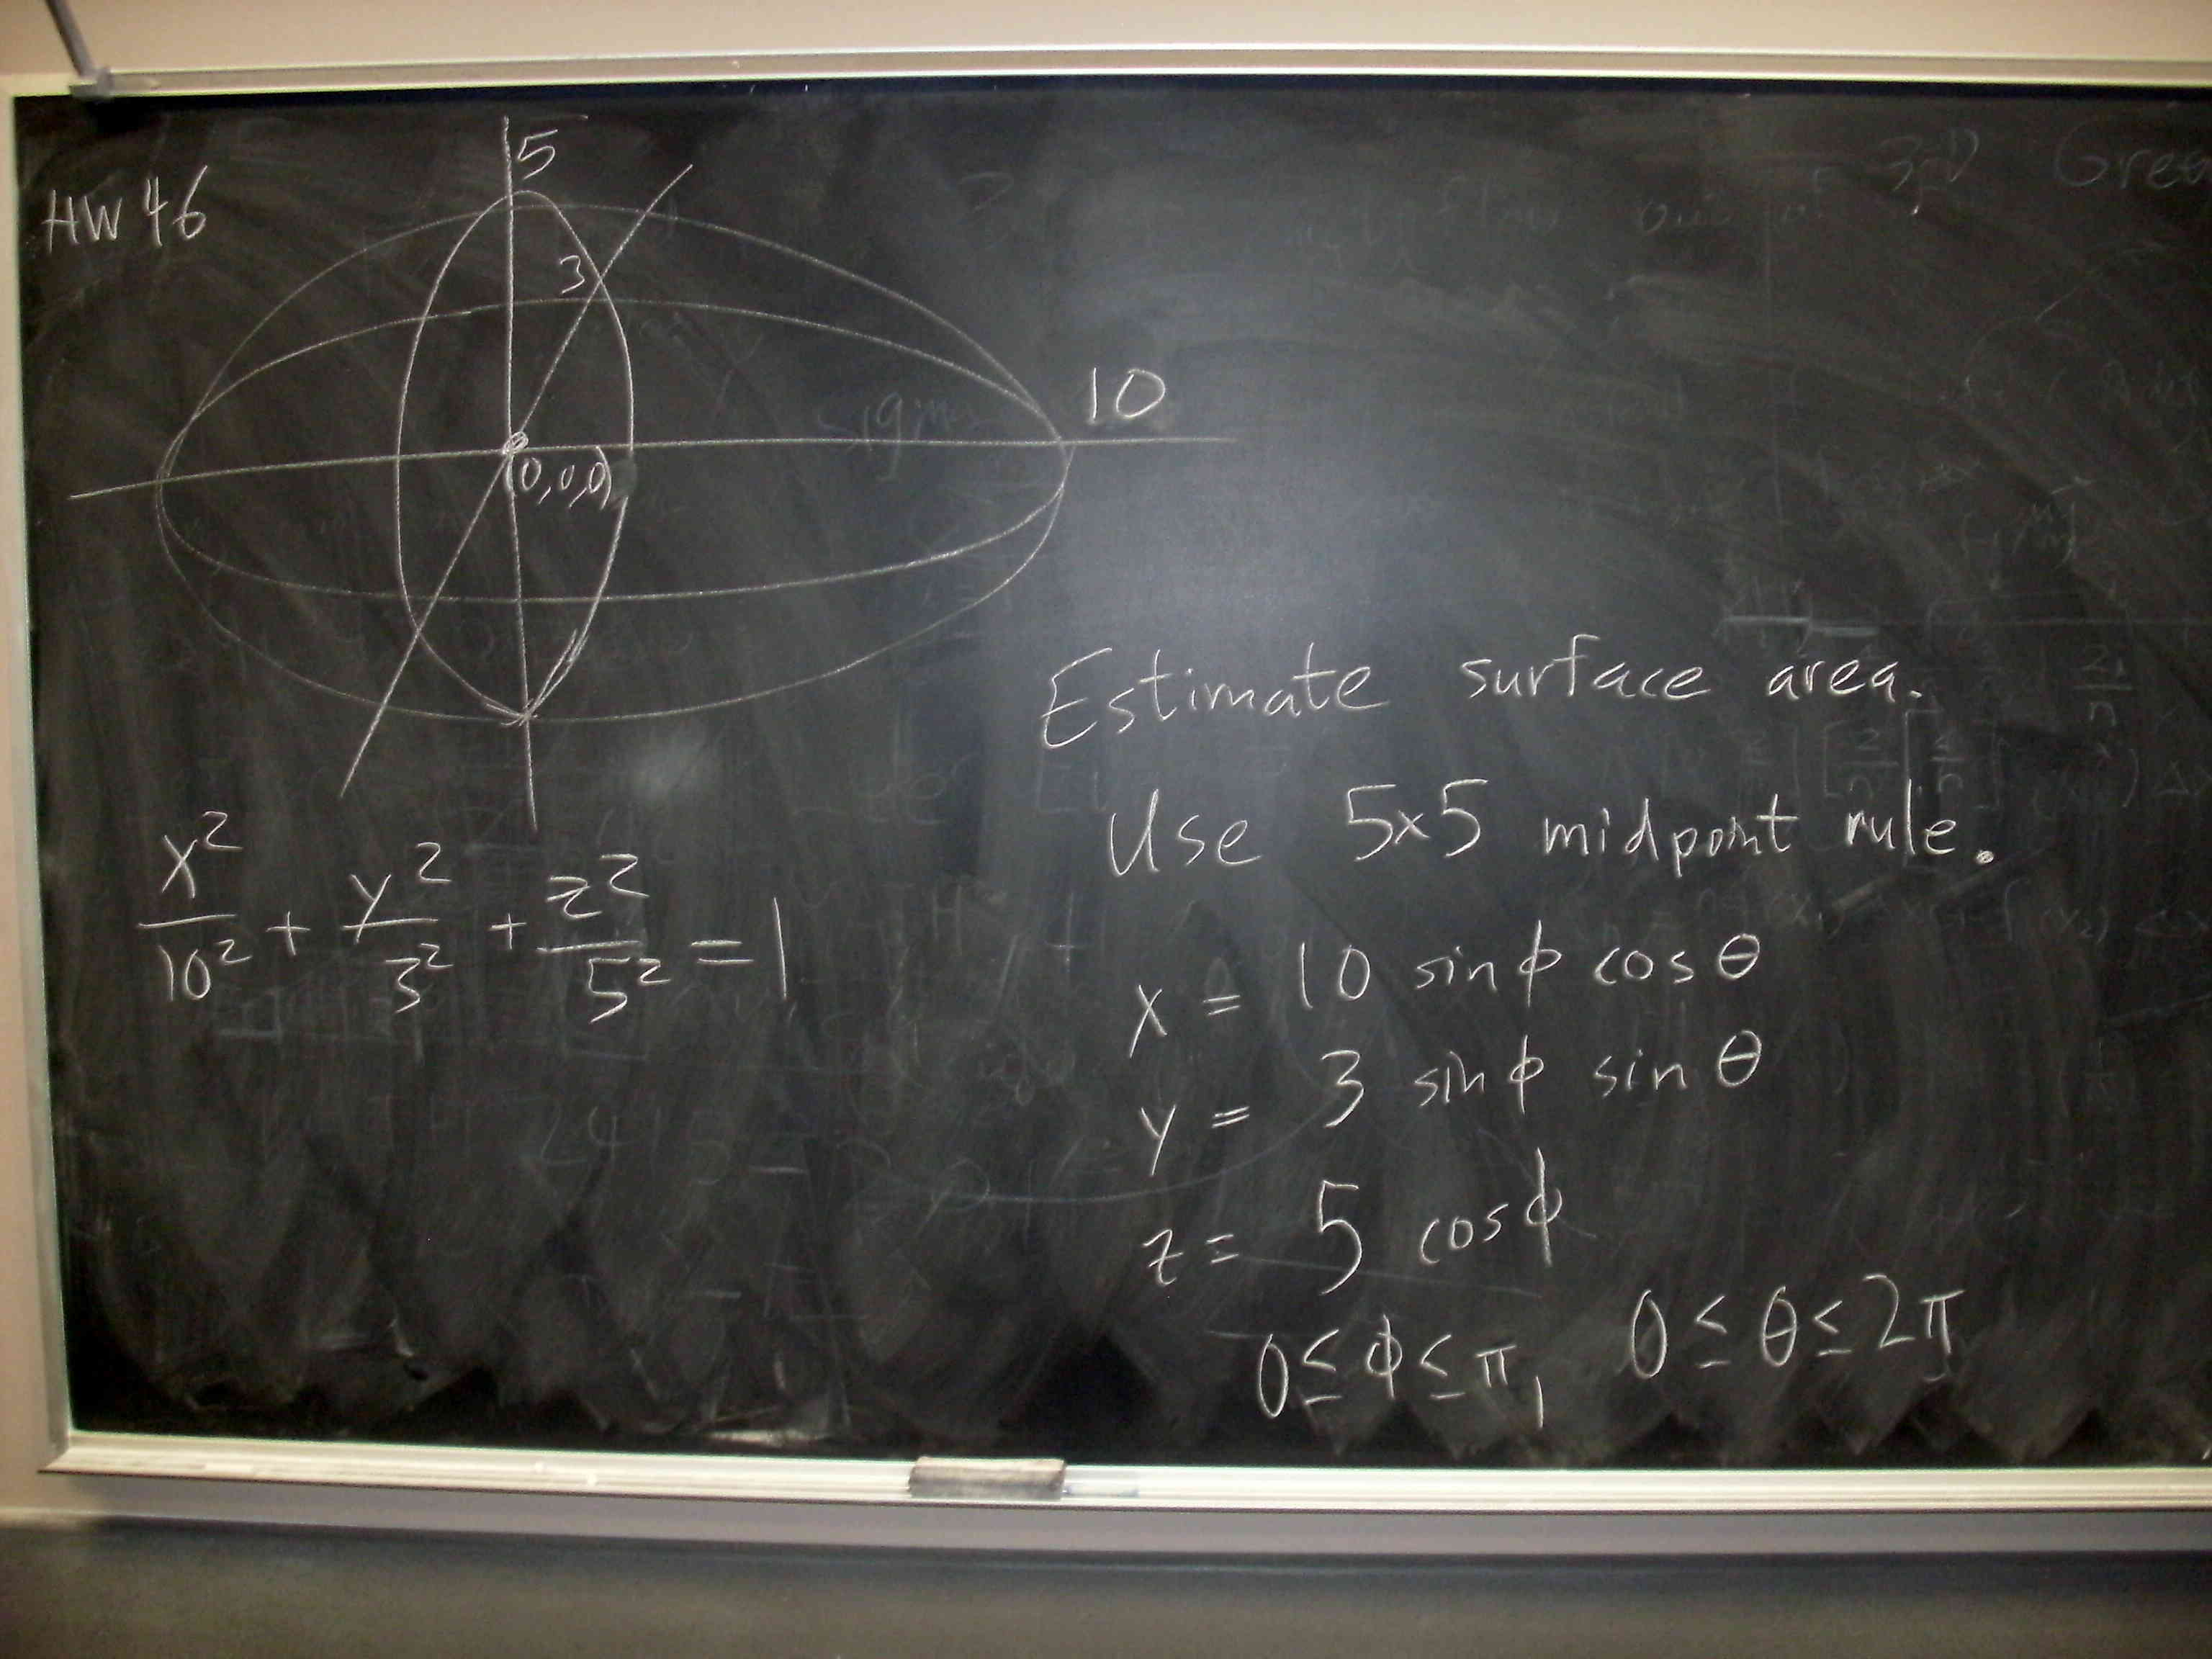 HW 46
5
3
10
(0,0,0)
x²/10² + y²/3² + z²/5² = 1
Estimate surface area.
Use 5x5 midpoint rule.
x = 10 sinϕ cosθ
y = 3 sinϕ sinθ
z = 5 cosϕ
0≤ϕ≤π, 0≤θ≤2π